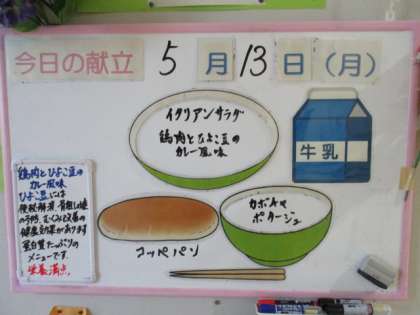 今日の献立 5月13日(月)
イタリアンサラダ
鶏肉とひよこ豆の
カレー風味
牛乳
コッペパン
カボチャ
ポタージュ
鶏肉とひよこ豆の
カレー風味
ひよこ豆には
便秘解消、骨粗しょう症
の予防、むくみと
健康効果があります
蛋白質たっぷりの
メニューです。
栄養満点。